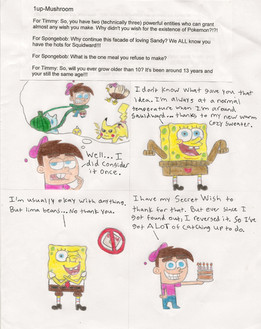 1up-Mushroom
For Timmy: So, you have two (technically three) powerful entities who can grant
almost any wish you make. Why didn't you wish for the existence of Pokemon?!?!
For Spongebob: Why continue this facade of loving Sandy? We ALL know
you have the hots for Squidward!!!
For Spongebob: What is the one meal you refuse to make?
For Timmy: So, will you ever grow older than 10? It's been around 13 years and
your still the same age!!!
I don't know What gave you that
idea. I'm always at a normal
temperature when I'm around
Squidward...thanks to my new warm
cozy sweater.
Well... I
did consider
it once.
I'm usually okay with anything.
But lima beans... No thank you.
I have my Secret Wish to
thank for that. But ever since I
got found out, I reversed it. So I've
got A LOT of catching up to do.